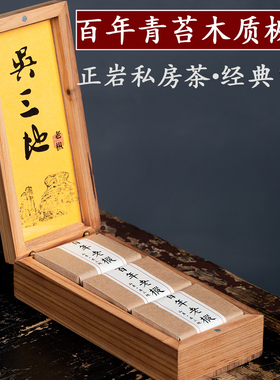 百年青苔木质
正岩私房茶·经典
吳三地
老樅
百年老樅
百年老樅
百年老樅